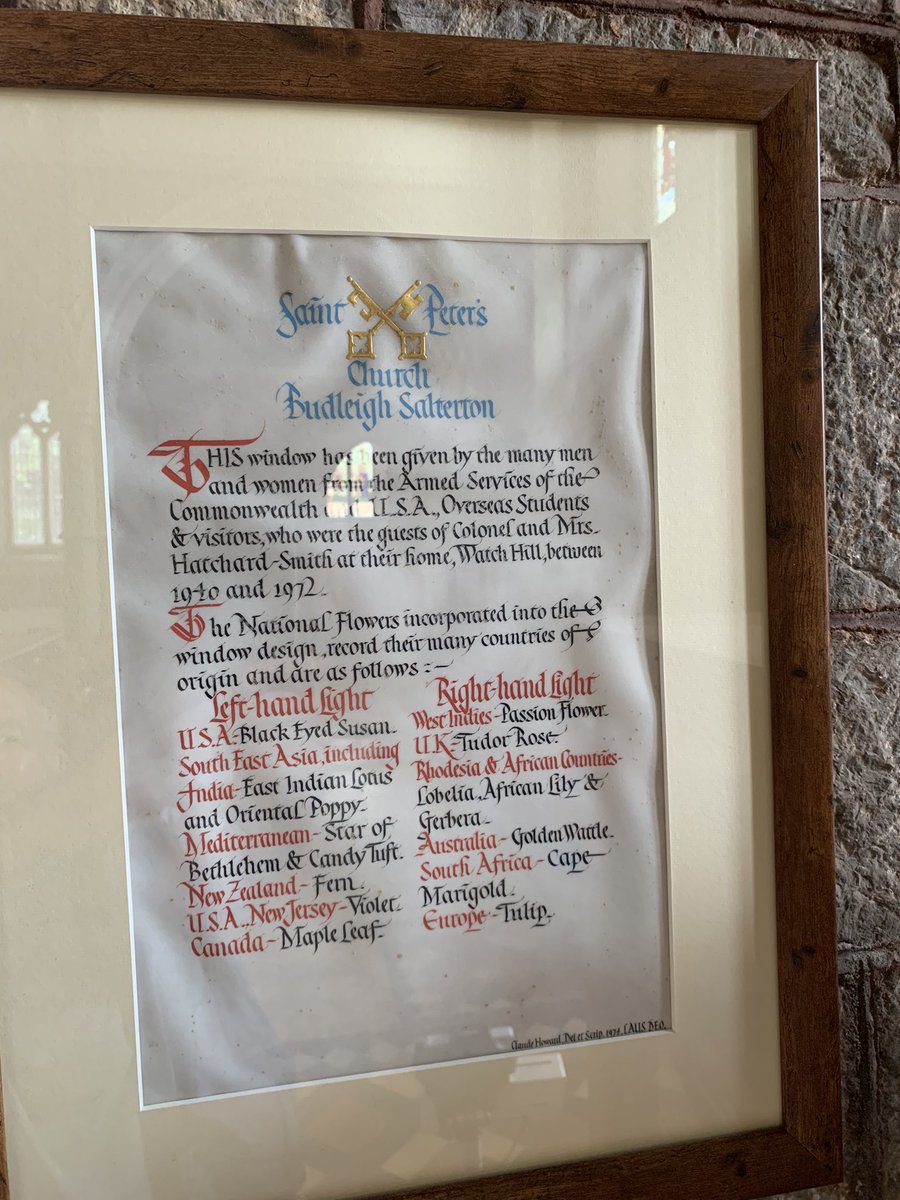 Saint Peter's
Church
Budleigh Salterton
THIS window has been given by the many men
and women from the Armed Services of the
Commonwealth U.S.A., Overseas Students
& visitors, who were the guests of Colonel and Mrs.
Hatchard-Smith at their home, Watch Hill, between
1940 and 1972.
The National Flowers incorporated into the
window design, record their many countries of
origin and are as follows :-
Left-hand Light
U.S.A.-Black Eyed Susan.
South East Asia, including
India-East Indian Lotus
and Oriental Poppy.
Mediterranean-Star of
Bethlehem & Candy Tuft.
New Zealand-Fern.
U.S.A., New Jersey-Violet.
Canada-Maple Leaf.
Right-hand Light
West Indies-Passion Flower.
U.K.-Tudor Rose.
Rhodesia & African Countries-
Lobelia, African Lily &
Gerbera.
Australia-Golden Wattle.
South Africa-Cape
Marigold.
Europe-Tulip.
Claude Howard, Del et Scrip. 1974. LAUS DEO.